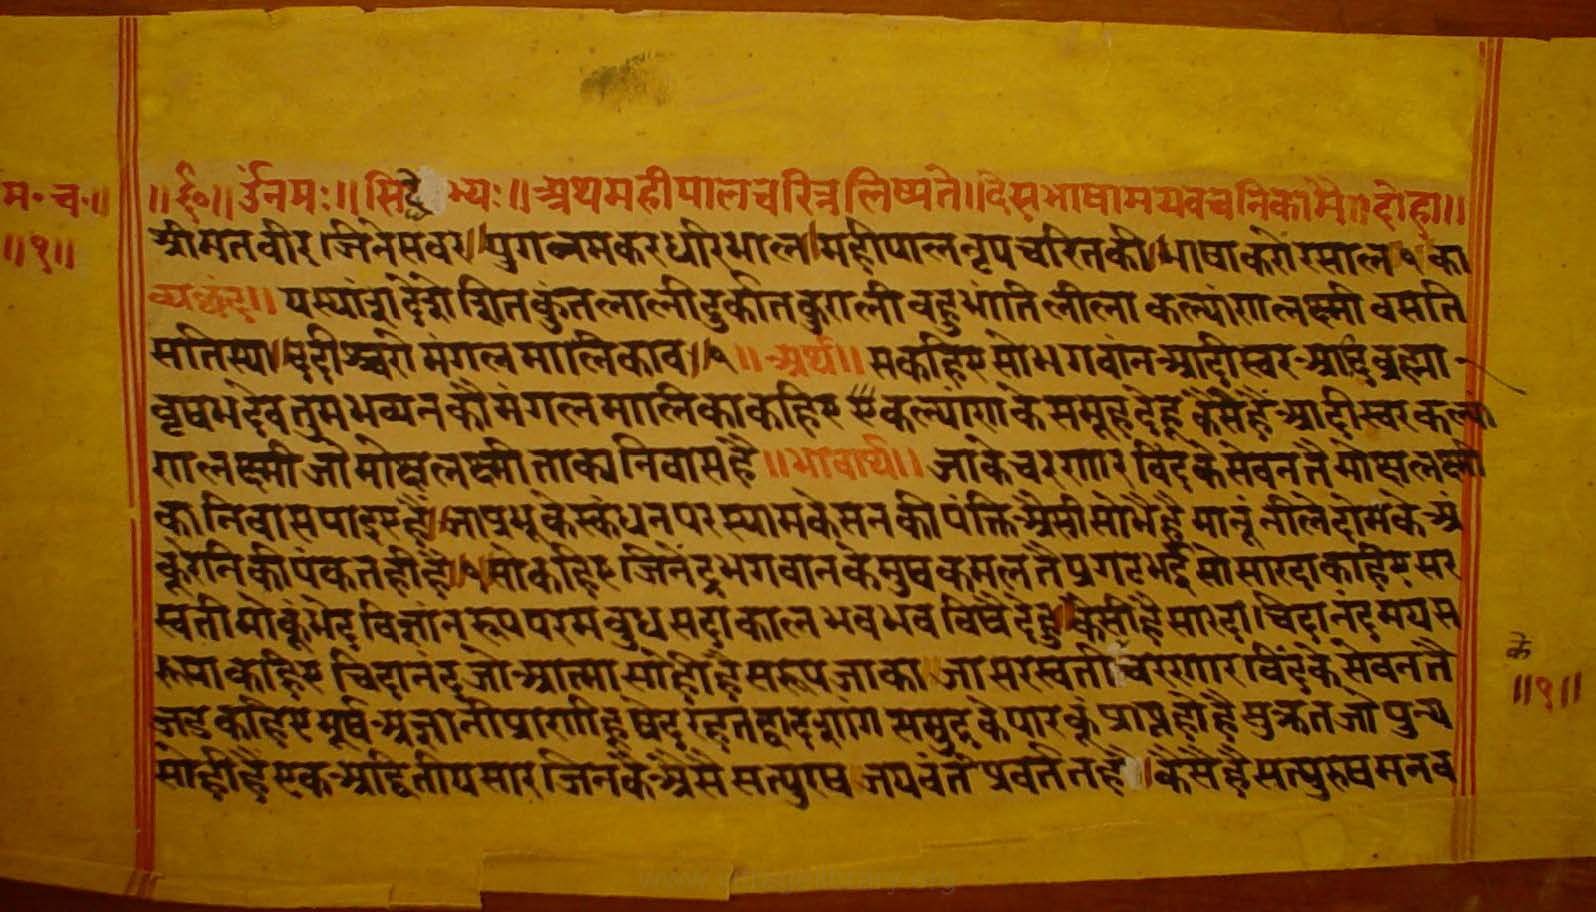 म॰च॰॥
॥१॥
॥र्द॰॥ उंनमः॥ सिद्धेभ्यः॥ अथमहीपालचरित्रलिष्यते॥ देसभाषामयवचनिकामै॥ दोहा॥
श्रीमतवीरजिनेसवर॥ पुगनमकरधरिभाल॥ महीपालनृपचरितकी॥ भाषाकरोंरसाल १ का
व्यछंद॥ यस्यांशदेशेशितकुंतलाली वहुभांतिलीला कल्यांणलक्ष्मी वसति
मंगलमालिकाव॥१॥ अर्थ॥ सकहिएसोभगवांनआदीस्वरआदिब्रह्मा
वृषभदेवतुमभव्यनकौमंगलमालिकाकहिए कल्यांणकेसमूहदेहू कैसेहैंआदीस्वरकल्या
णलक्ष्मीजोमोक्षलक्ष्मीताकानिवासहै॥ भावार्थ॥ जाकेचरणारविंदकेसेवनतैमोक्षलक्ष्मी
कानिवासपाइएहैं॥ जाप्रभूकेस्कंधनपरस्यामकेसनकीपंक्तिअैसीसोभैहै मानूंनीलेदोमके अं
कूरनिकीपंकतहीहै॥१ सोकहिएजिनेंद्रभगवानकेमुषकमलतैप्रगटभई सोसारदाकहिएसर
स्वतीमोकूंभेदविज्ञांनरूपपरमवुधसदाकालभवभवविषैदेहु॥ कैसीहैसारदा। चिदानंदमयस
रूपाकहिएचिदानंदजोआत्मासोहीहैसरूपजाका॥ जासरस्वतीकेचरणारविंदकेसेवनतै
जडकहिएमूर्षअज्ञानीप्राणीहूषेदरहतद्वादशांगसमुद्रकेपारकूंप्राप्तहोहै सुक्रतजोपुन्य
सोहीहैएकअद्वितीयसारजिनकैअैसैसत्पुरषजयवंतैप्रवर्तेतहै॥ कैसेहैंसत्पुरुषमनव
के
॥१॥